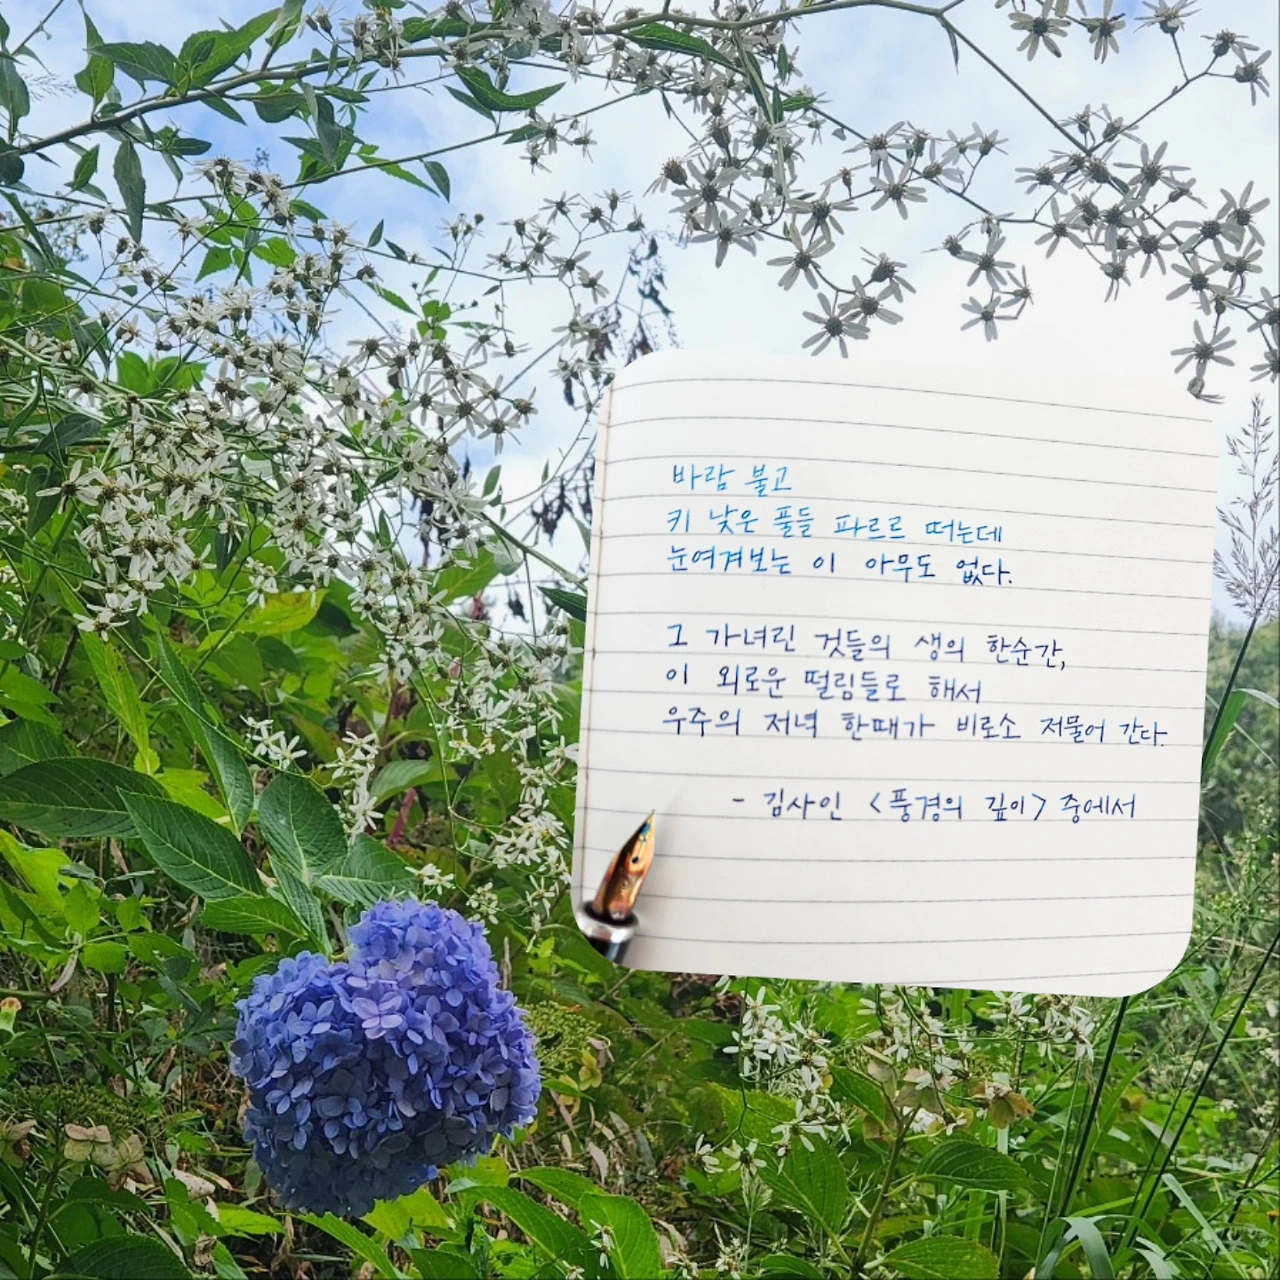 바람 불고
키 낮은 풀들 파르르 떠는데
눈여겨보는 이 아무도 없다.
그 가녀린 것들의 생의 한순간,
이 외로운 떨림들로 해서
우주의 저녁 한때가 비로소 저물어 간다.
- 김사인 <풍경의 깊이> 중에서